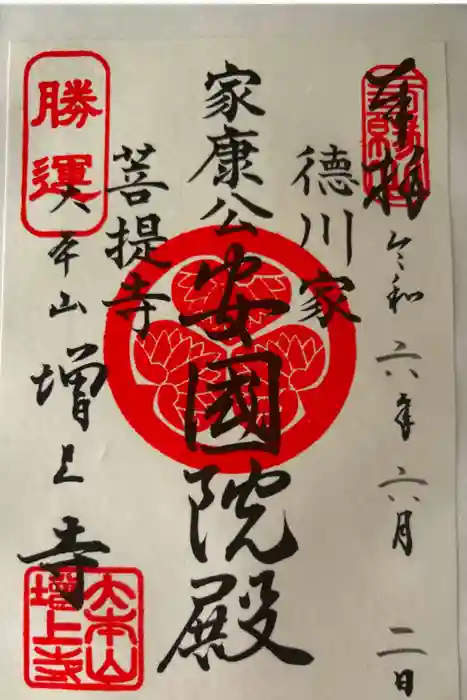 奉拝
令和六年六月二日
徳川家
家康公
安國院殿
菩提寺
勝運
大本山
増上寺
大本山
増上寺